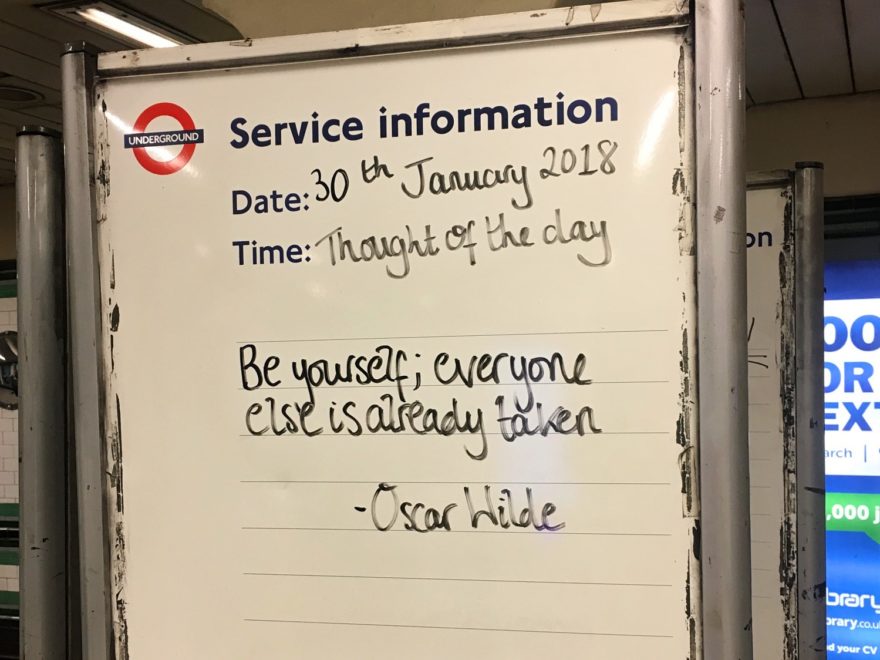 UNDERGROUND
Service information
Date: 30th January 2018
Time: Thought of the day
Be yourself; everyone
else is already taken
- Oscar Wilde
on
OO
OR
EXT
arch |
,000 j
brary
brary.co.u
d your CV